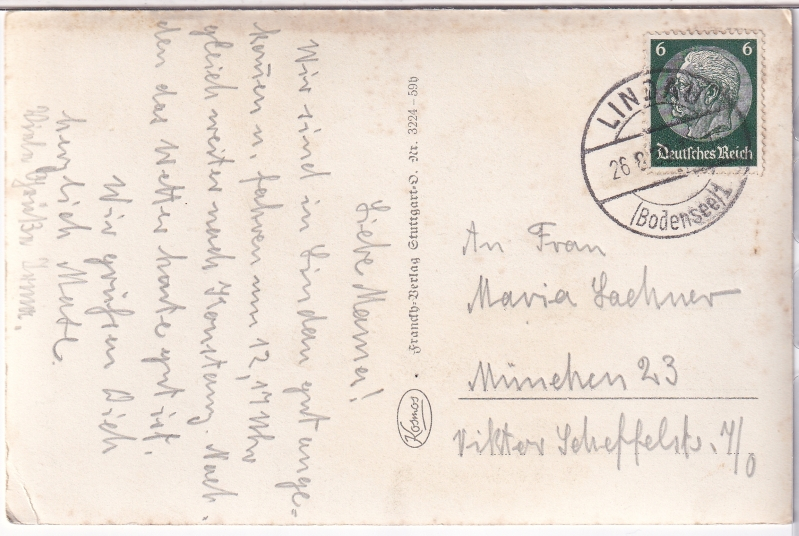 Liebe Mama!
Wir sind in Lindau gut ange-
kommen u. fahren um 12,17 Uhr
gleich weiter nach Konstanz. Nach-
den das Wetter heute gut ist.
Wir grüßen Dich
herzlich
Viele Grüße
Franckh-Verlag Stuttgart-O. Nr. 3224-59b
Kosmos
6 6
Deutsches Reich
LINDAU
26.8
(Bodensee)1
An Frau
Maria Lachner
München 23
Viktor Scheffelstr. 7/0